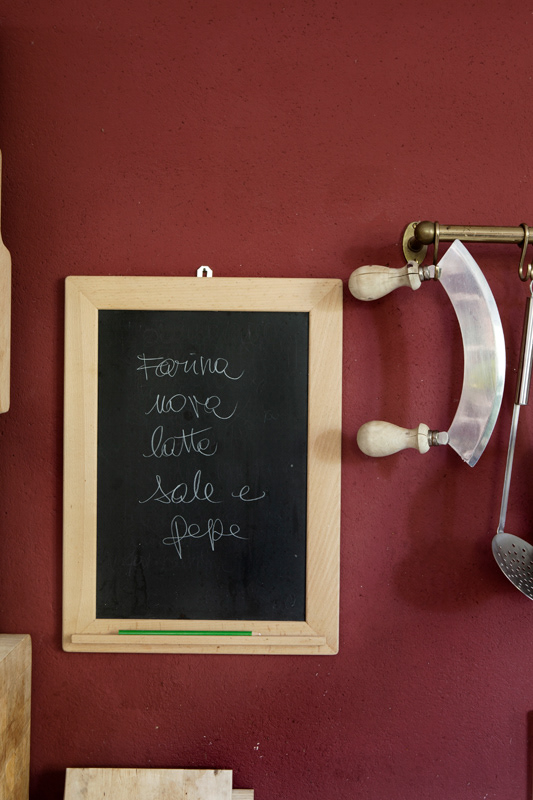 Farina
uova
latte
sale e
pepe